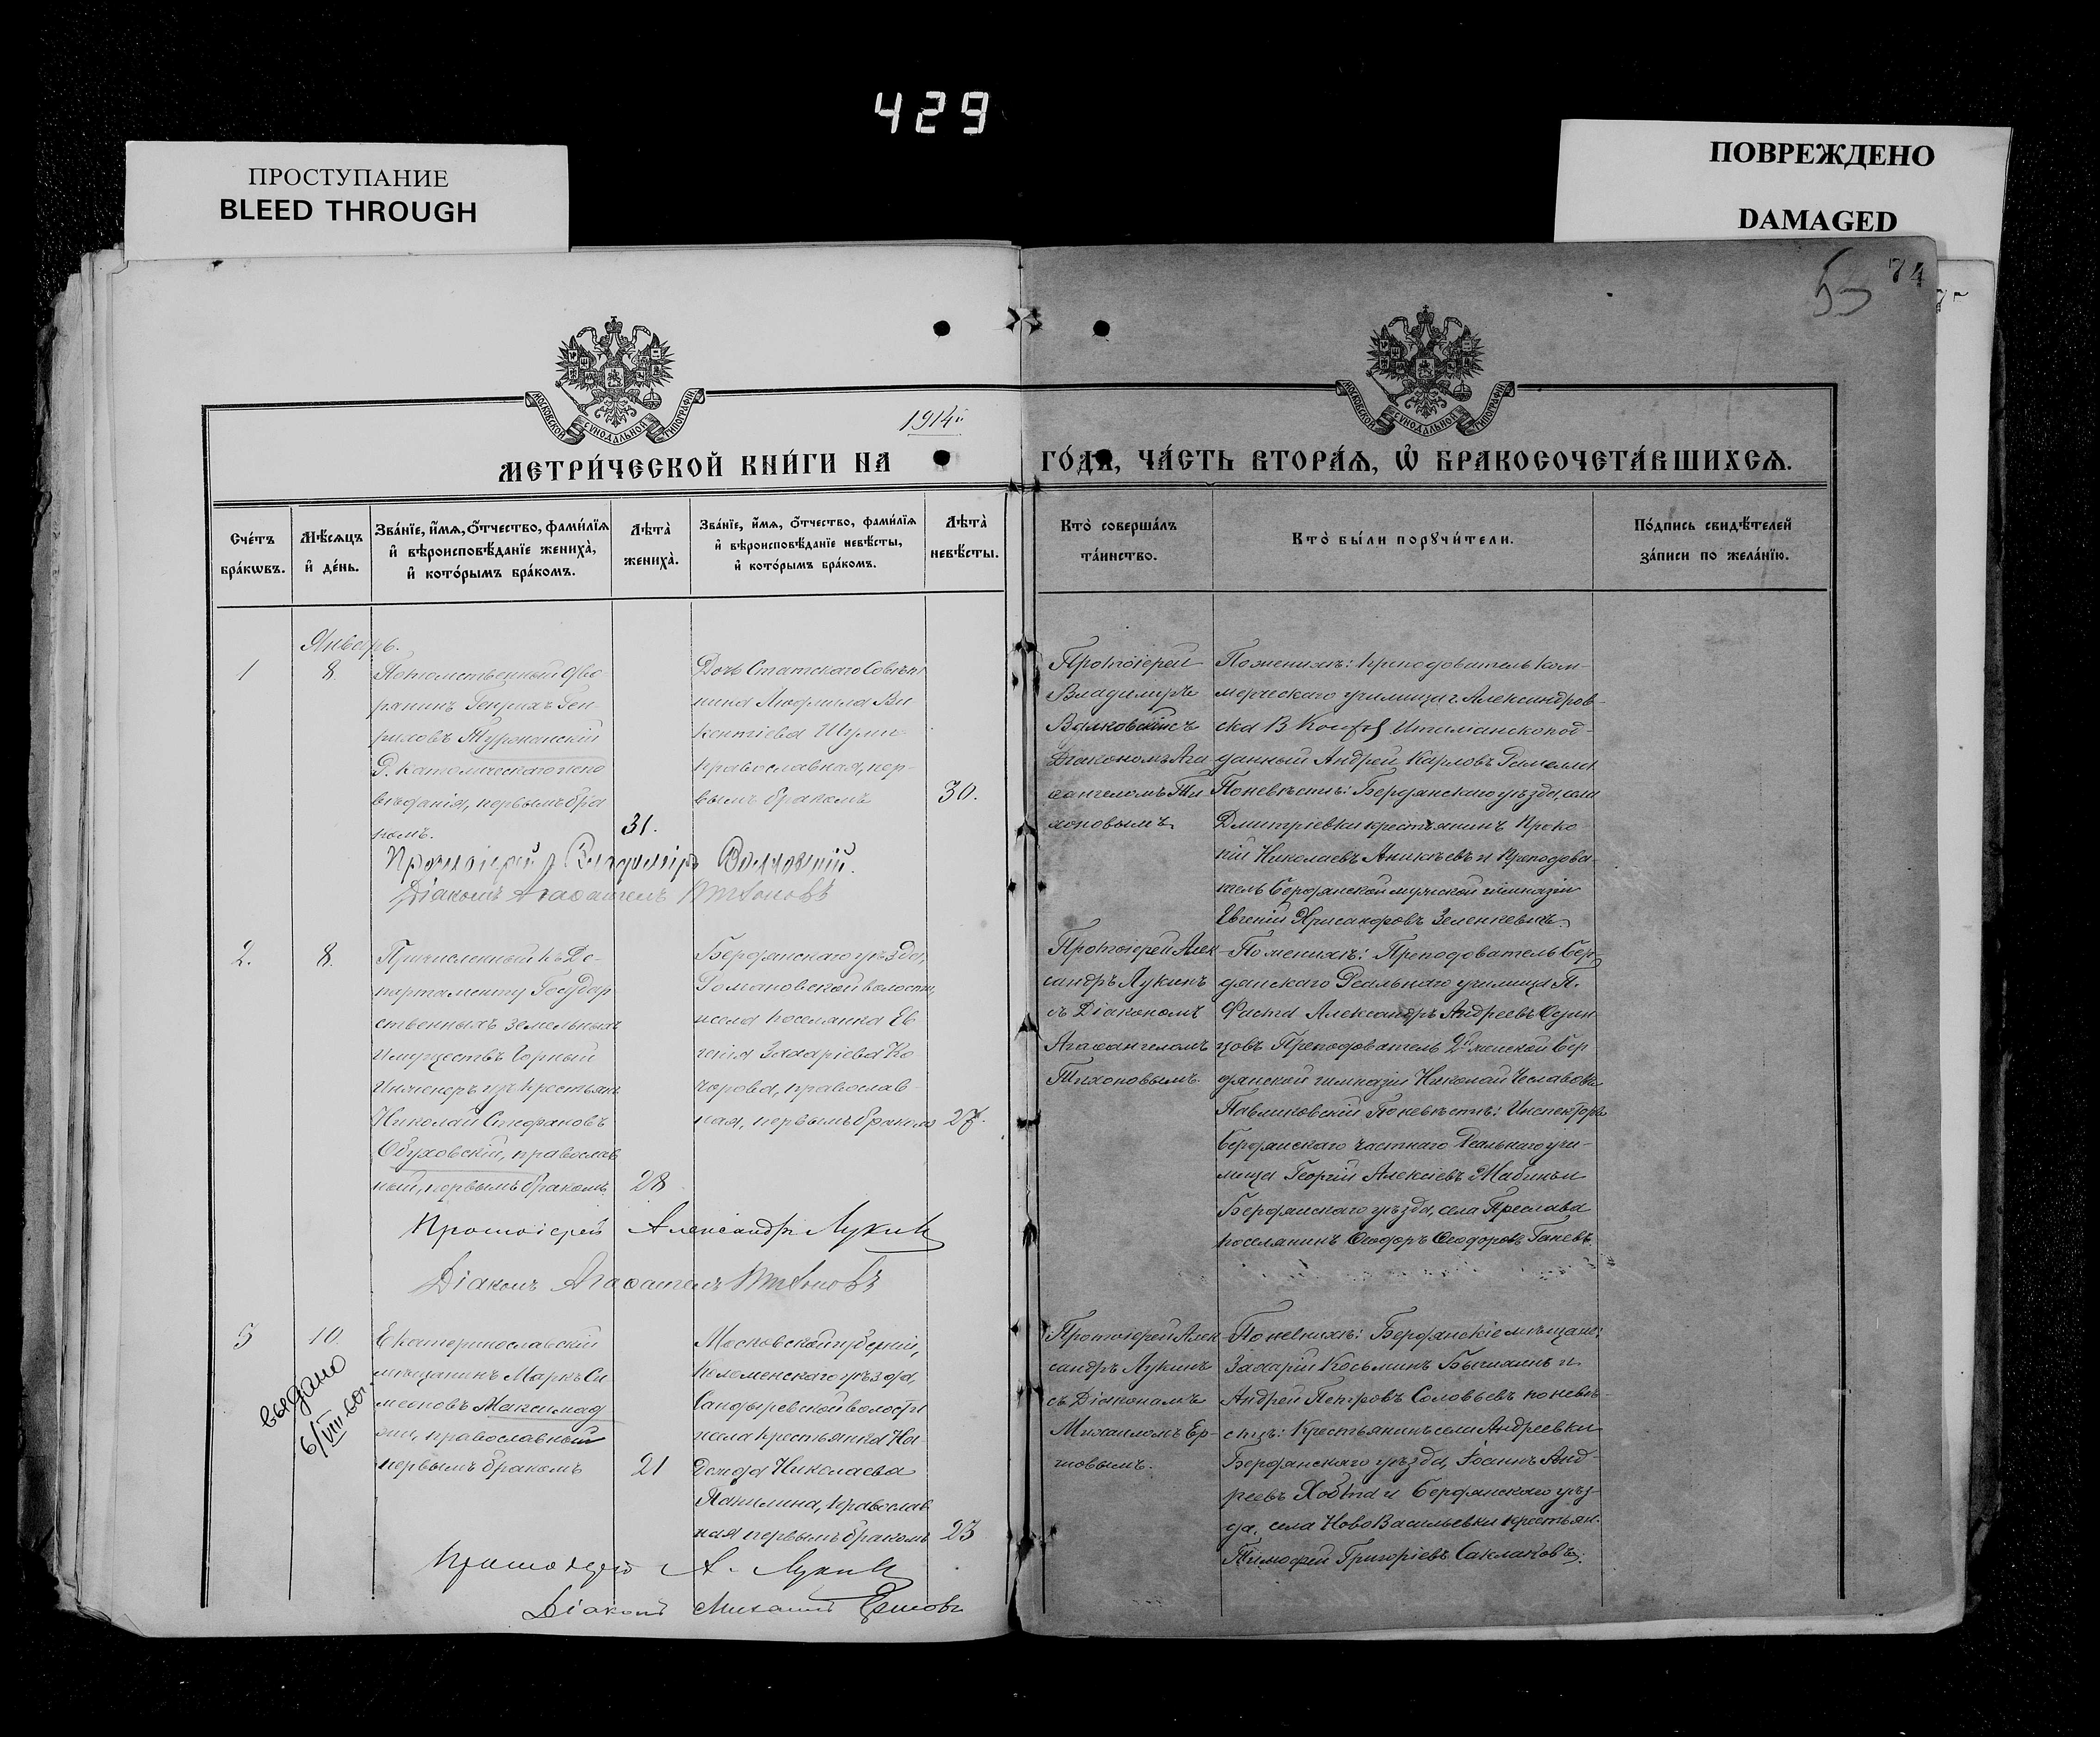 429
ПРОСТУПАНИЕ
BLEED THROUGH
ПОВРЕЖДЕНО
DAMAGED
53 74
МОСКОВСКОЙ СѴНОДАЛЬНОЙ ТИПОГРАФІИ
МОСКОВСКОЙ СѴНОДАЛЬНОЙ ТИПОГРАФІИ
1914й
МЕТРИ́ЧЕСКОЙ КНИ́ГИ НА
ГО́ДА, ЧА́СТЬ ВТОРА́Ѧ, Ѡ҆ БРАКОСОЧЕТА́ВШИХСѦ.
Сче́тъ
бра́кѡвъ.
Мѣ́сѧцъ
и҆ де́нь.
Зва́нїе, и҆́мѧ, ѻ҆́тчество, фами́лїѧ
и҆ вѣроисповѣ́данїе жениха̀,
и҆ кото́рымъ бра́комъ.
Лѣта̀
жениха̀.
Зва́нїе, и҆́мѧ, ѻ҆́тчество, фами́лїѧ
и҆ вѣроисповѣ́данїе невѣ́сты,
и҆ кото́рымъ бра́комъ.
Лѣта̀
невѣ́сты.
Кто̀ соверша́лъ
та́инство.
Кто̀ бы́ли порꙋчи́тели.
По́дпись свидѣ́телей
за́писи по жела́нїю.
Январь.
1
8.
Потомственный дво
рянинъ Генрихъ Ген
риховъ
Р. Католическаго испо
вѣданія, первымъ бра
комъ.
31.
Дочь Статскаго Совѣт
ника Людмила Ви
кентіева
православная, пер-
вымъ бракомъ
30.
Протоіерей
Владиміръ
Волковскій съ
Діакономъ Ага
ѳангеломъ Ти
хоновымъ
По женихѣ: преподователь Ком-
мерческаго училища г. Александров-
ска В. Италіанскопод-
данный Андрей Карловъ
По невѣстѣ: Бердянскаго уѣзда, села
Дмитріевки крестьянинъ Проко
пій Николаевъ Аникѣевъ и преподова-
тель Бердянской мужской гимназіи
Евгеній Хрисанфовъ Зеленкевичъ
Протоіерей Владиміръ Волковскій.
Діаконъ Агаѳангелъ Тихоновъ
2.
8.
Причисленный къ Де-
партаменту Государ
ственныхъ Земельныхъ
Имуществъ Горный
Инженеръ изъ крестьянъ
Николай Стефановъ
Обуховскій, православ
ный, первымъ бракомъ
28
Бердянскаго уѣзда,
Романовской волости,
и села поселянка Ев
генія Захаріева Ко
чорова, православ-
ная, первымъ бракомъ
27.
Протоіерей Алек
сандръ Лукинъ
съ Діакономъ
Агаѳангеломъ
Тихоновымъ.
По женихѣ: Преподователь Бер-
дянскаго Реальнаго училища П.
Фаста Александръ Андреевъ Один
цовъ Преподователь 2й женской Бер-
дянской гимназіи Николай Чеславовъ
Павликовскій По невѣстѣ: Инспекторъ
Бердянскаго частнаго Реальнаго учи-
лища Георгій Алексіевъ
Бердянскаго уѣзда, села Преслава
поселянинъ Ѳеодоръ Ѳеодоровъ Ганевъ.
Протоіерей Александръ Лукинъ
Діаконъ Агаѳангелъ Тихоновъ
3
10
выдано
6/VIII-60г.
Екатеринославскій
мѣщанинъ Маркъ Си
меоновъ
православный
первымъ бракомъ
21
Московской губерніи,
Коломенскаго уѣзда,
Сандыревской волости
и села крестьянка На-
дежда Николаева
православ
ная первымъ бракомъ
23
Протоіерей Алек
сандръ Лукинъ
съ Діакономъ
Михаиломъ Ер-
шовымъ.
По женихѣ: Бердянскіе мѣщане:
Захарій Косьминъ и
Андрей Петровъ Соловьевъ по невѣ-
стѣ: Крестьянинъ села Андреевки
Бердянскаго уѣзда, Іоаннъ Анд-
реевъ и Бердянскаго уѣз-
да, села Ново Васильевки крестьян.
Тимофей Григоріевъ Саклаковъ.
Протоіерей А. Лукинъ
Діаконъ Михаилъ Ершовъ